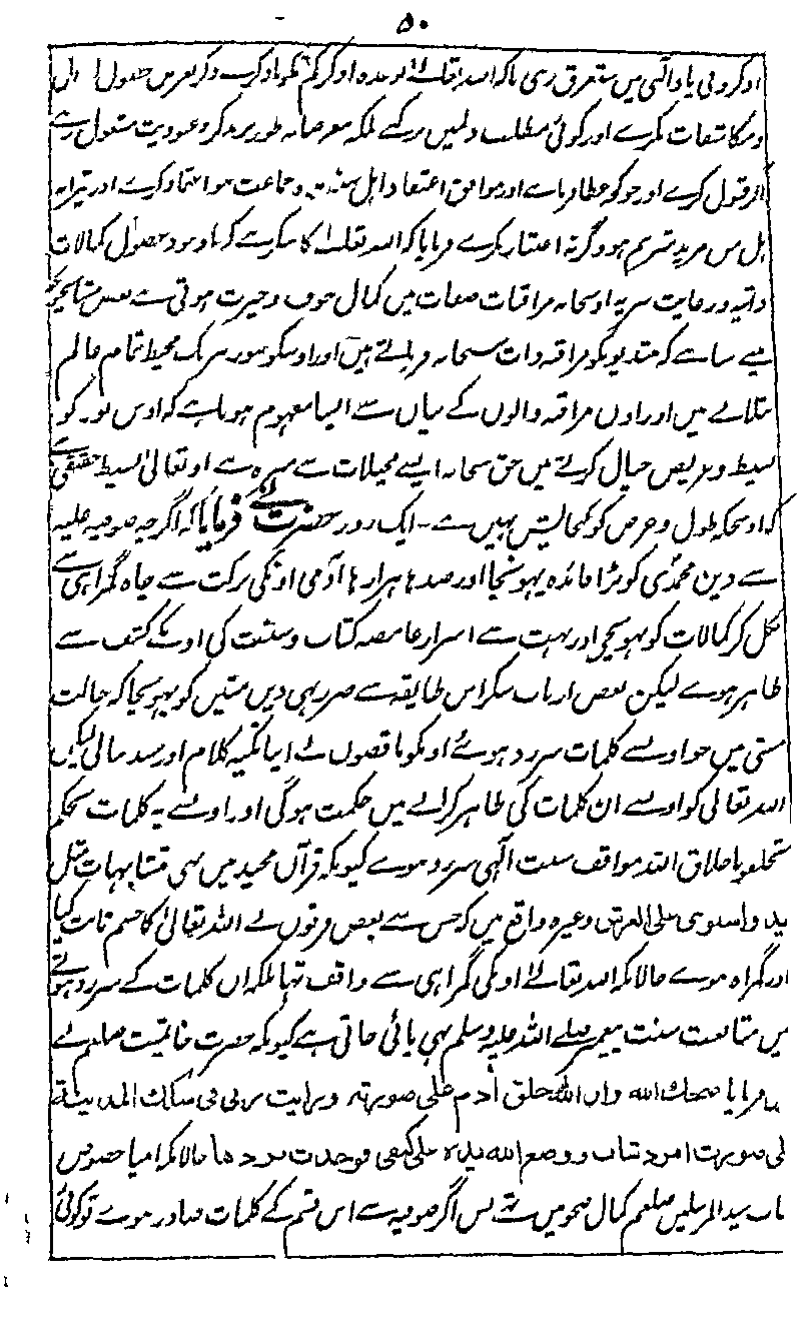 ۵۰
یاد الٰہی میں مستغرق رہے تاکہ اللہ تعالے
اور کوئی مطلب دلمیں نرکھے بلکہ طور پر ذکر و عبودیت مشغول رہے
قبول کرے اور جو کچھ اور موافق اعتقاد اہل سنت و جماعت ہو اعتماد کرے اور
ہو وگرنہ اعتبار نکرے فرمایا کہ اللہ تعالیٰ کا شکر ہے کہ باوجود حصول کمالات
صفات میں کمال خوف و حیرت ہوتی ہے بعض مشایخ
سے سنا ہے کہ مراقبہ ذات سبحانہ فرماتے ہیں اور اوسکو محیط تمام عالم
بتلاتے ہیں اور اون مراقبہ والوں کے بیاں سے ایسا مفہوم ہوتا ہے کہ اوس نور کو
بسیط و عریض خیال کرتے ہیں حق سبحانہ ایسے تخیلات سے منزہ ہے او تعالیٰ بسیط حقیقی ہے
کہ اوسجگہ طول و عرض کو گنجایش نہیں ہے ۔ ایک روز حضرت نے فرمایا کہ اگرچہ صوفیہ علیہ
سے دین محمدی کو بڑا فائدہ پہونچا اور صدہا ہزارہا آدمی اونکی برکت سے چاہ گمراہی سے
نکل کر کمالات کو پہونچے اور بہت سے اسرار غامضہ کتاب و سنت کی اونکے کشف سے
ظاہر ہوے لیکن بعض ارباب سکر اس طایفہ سے ضرر بھی دین متین کو پہونچا کہ حالت
مستی میں جو اونسے کلمات سرزد ہوئے اونکو ناقصوں نے اپنا تکیہ کلام اور سند بنالی لیکن
اللہ تعالی کو اونسے ان کلمات کی ظاہر کرانے میں حکمت ہوگی اور اونسے یہ کلمات بحکم
تخلقوا باخلاق اللہ موافق سنت الٰہی سرزد ہوے کیونکہ قرآں مجید میں بھی متشابہات مثل
ید و استوی علی العرش وغیرہ واقع ہیں کہ جس سے بعض فرقوں نے اللہ تعالیٰ کا جسم ثابت کیا
اور گمراہ ہوے حالانکہ اللہ تعالے اونکی گمراہی سے واقف تھا بلکہ اں کلمات کے سرزد ہونے
میں متابعت سنت پیغمبر صلے اللہ علیہ وسلم بھی پائی جاتی ہے کیونکہ حضرت خاتمیت صلعم نے
فرمایا ضحك الله وان الله خلق أدم على صورته ورايت ربي في سكك المدينة
على صورت امرد شاب ووضع الله يده على كتفي فوجدت بردها حالانکہ انبیا خصوص
جناب سید المرسلیں صلعم کمال صحو میں تھے پس اگر صوفیہ سے اس قسم کے کلمات صادر ہوے تو کوئی